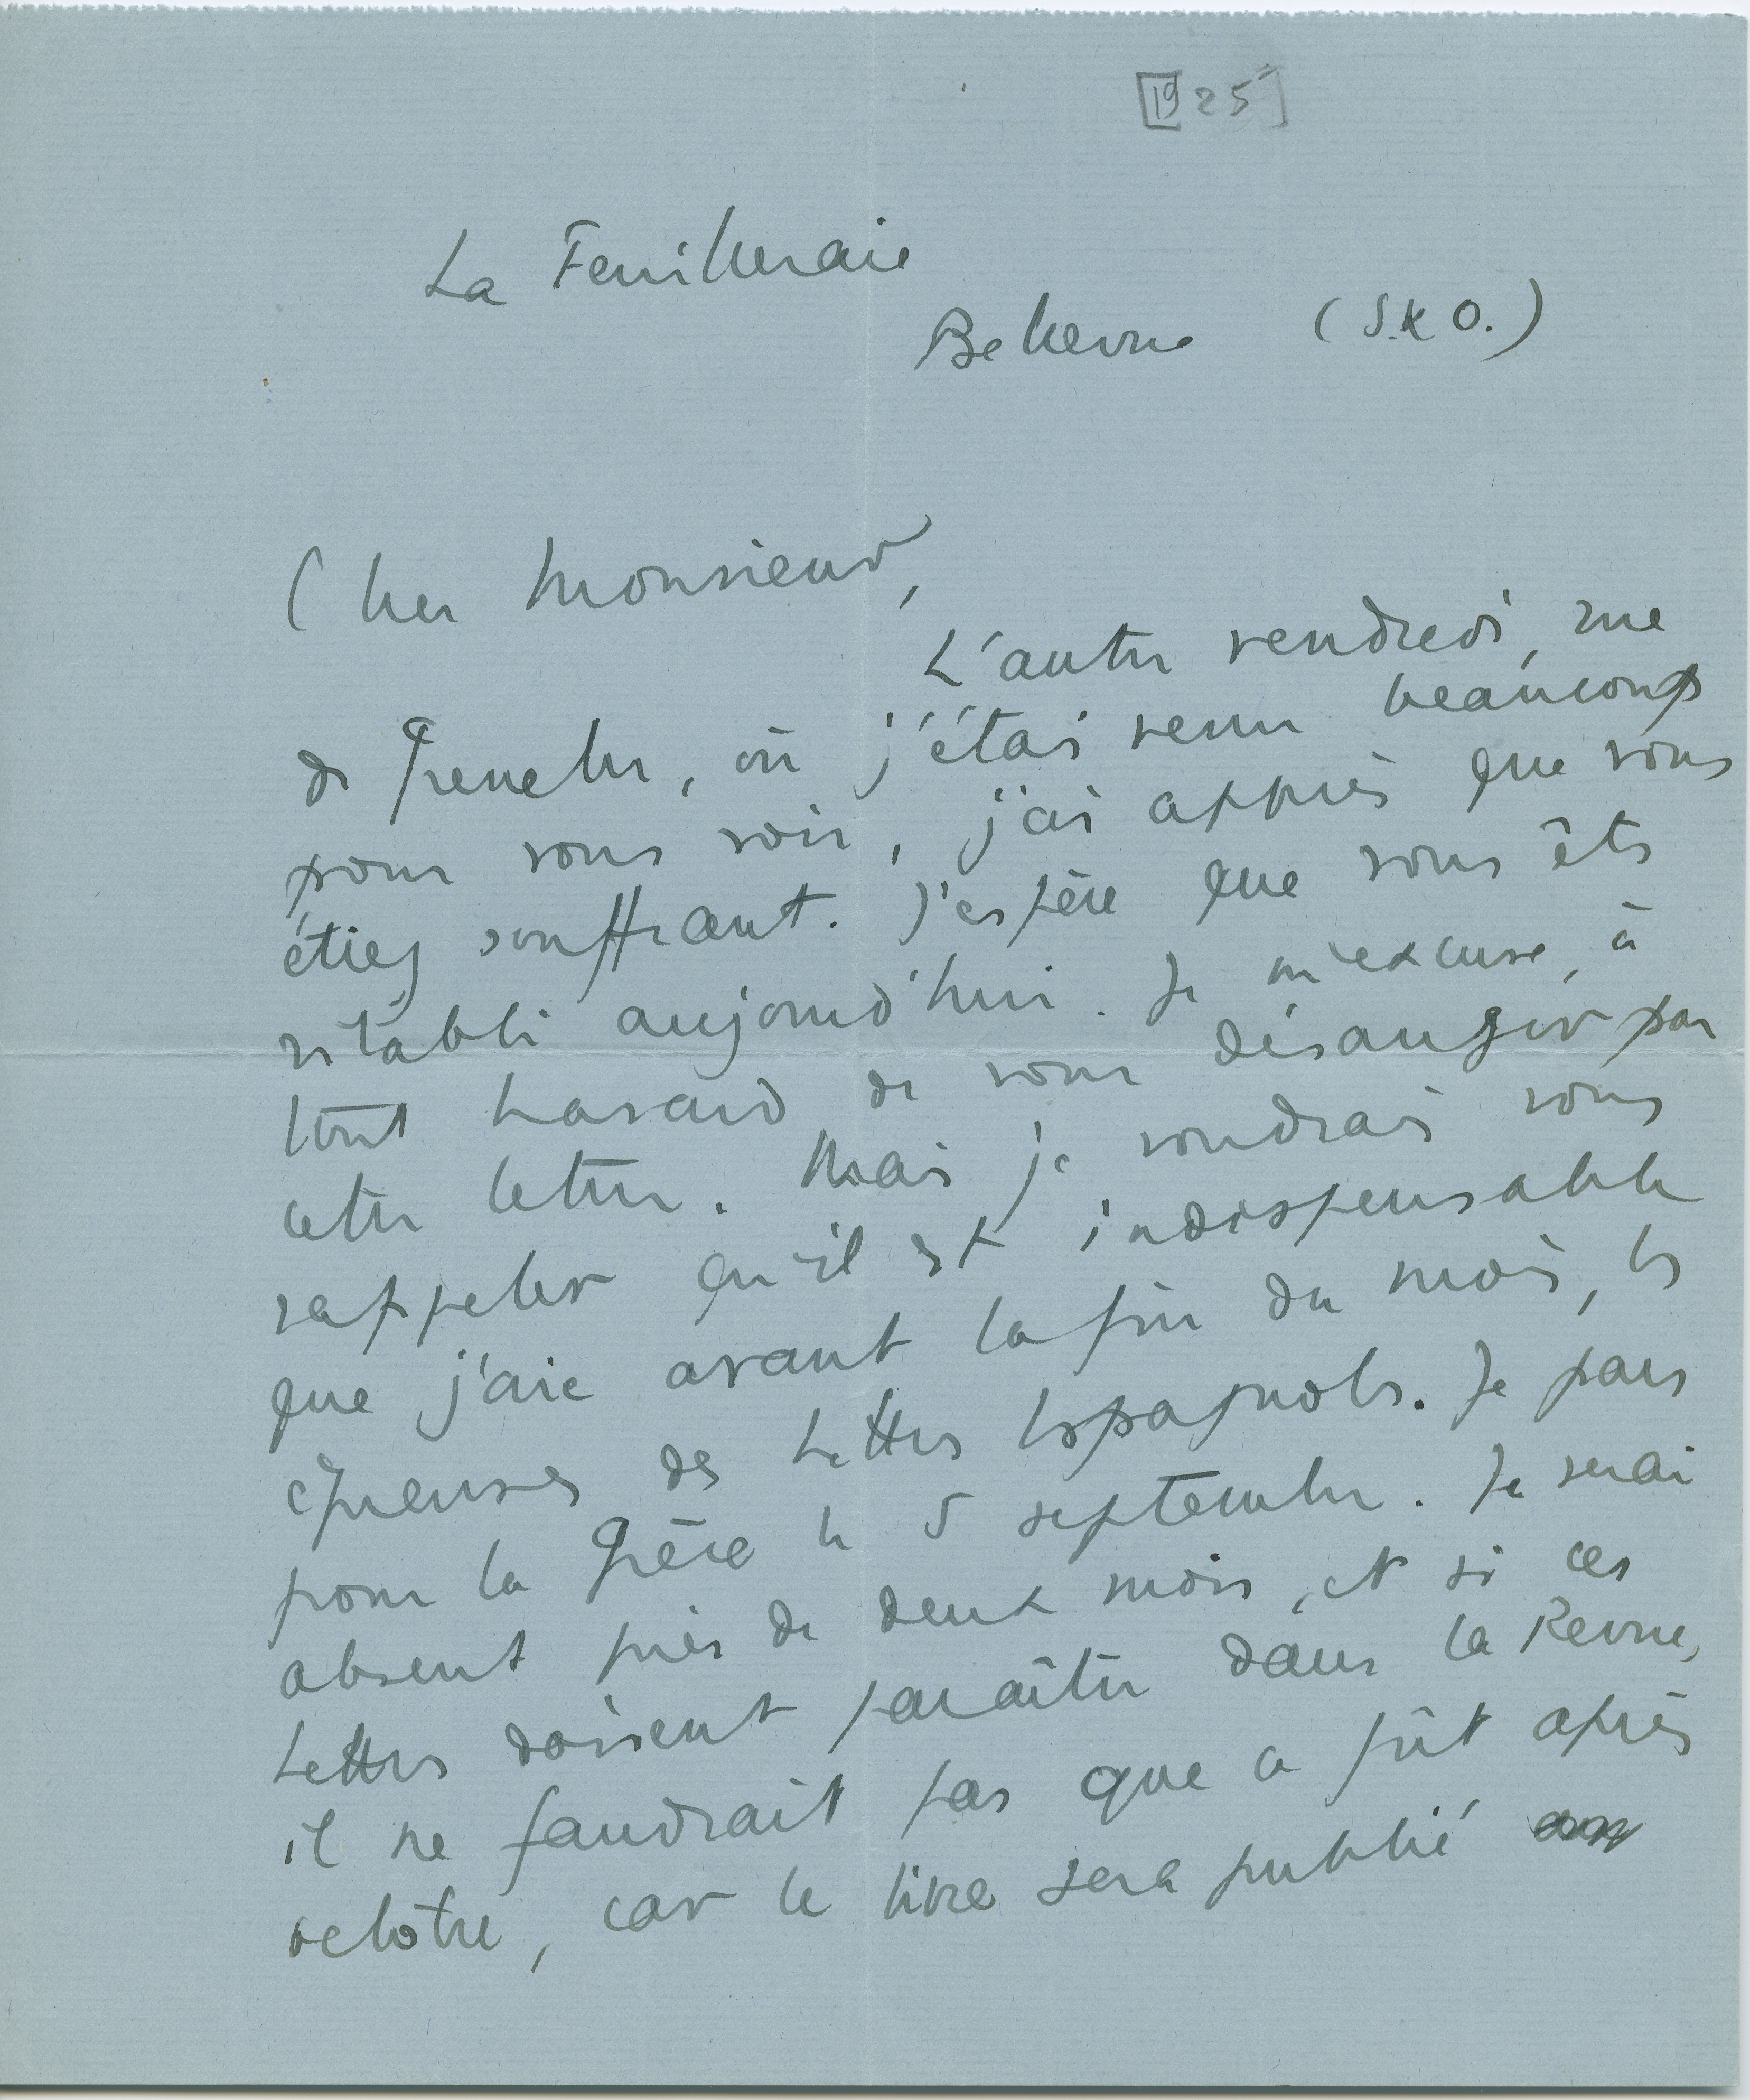 [1925]
La Feuilleraie
Bellevue (S.&O.)
Cher Monsieur,
L'autre vendredi, rue
de Grenelle, où j'étais venu beaucoup
pour vous voir, j'ai appris que vous
étiez souffrant. J'espère que vous êtes
rétabli aujourd'hui. Je m'excuse, à
tout hasard, de vous déranger par
cette lettre. Mais je voudrais vous
rappeler qu'il est indispensable
que j'aie avant la fin du mois, les
épreuves des Lettres Espagnoles. Je pars
pour la Grèce le 5 septembre. Je serai
absent près de deux mois, et si ces
Lettres doivent paraître dans la Revue,
il ne faudrait pas que ce fût après
octobre, car le livre sera publié